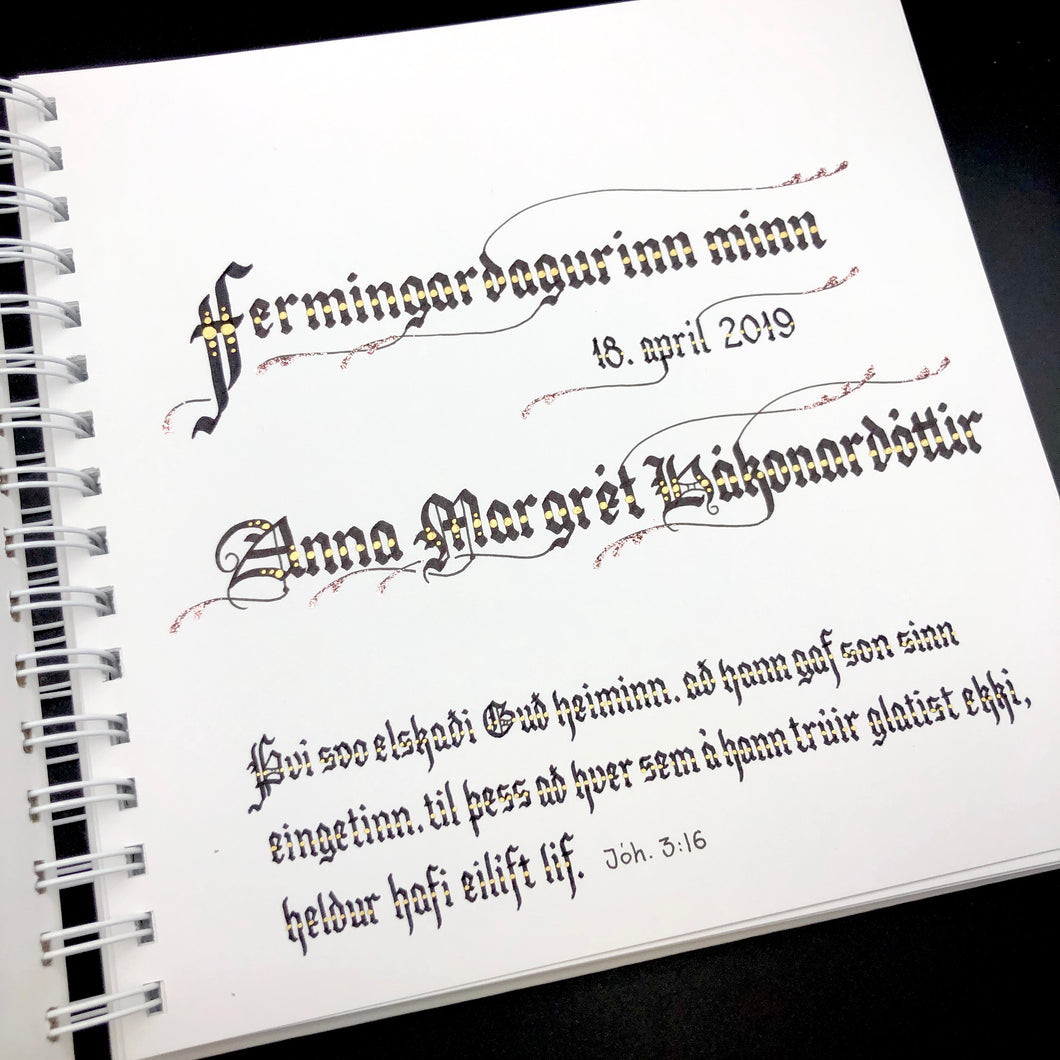 Fermingardagurinn minn
18. apríl 2019
Anna Margrét Hákonardóttir
Því svo elskaði Guð heiminn, að hann gaf son sinn
eingetinn, til þess að hver sem á hann trúir glatist ekki,
heldur hafi eilíft líf. Jóh. 3:16